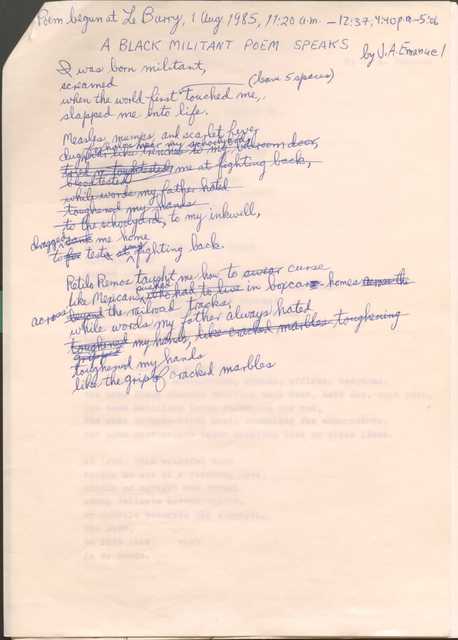 Poem begun at Le Barry, 1 Aug 1985, 11:20 a.m. – 12:37, 4:40 p.m – 5:06
A BLACK MILITANT POEM SPEAKS
by J.A. Emanuel
I was born militant,
screamed (leave 5 spaces)
when the world first touched me,
slapped me into life.
Measles, mumps, and scarlet fever
dug holes near my schoolbooks,
like to my bedroom door,
me at fighting back,
bloodtested
while words my father hated
toughened my hands
to the schoolyard, to my inkwell,
dragged sank me home
to for tests of fighting back.
Potilo Remos taught me how to swear curse
like Mexicans pushed who had to live in boxcar homes across the
across beyond the railroad tracks,
while words my father always hated
toughened my hands, like cracked marbles, toughening
gripped
toughened my hands
like the grip of cracked marbles